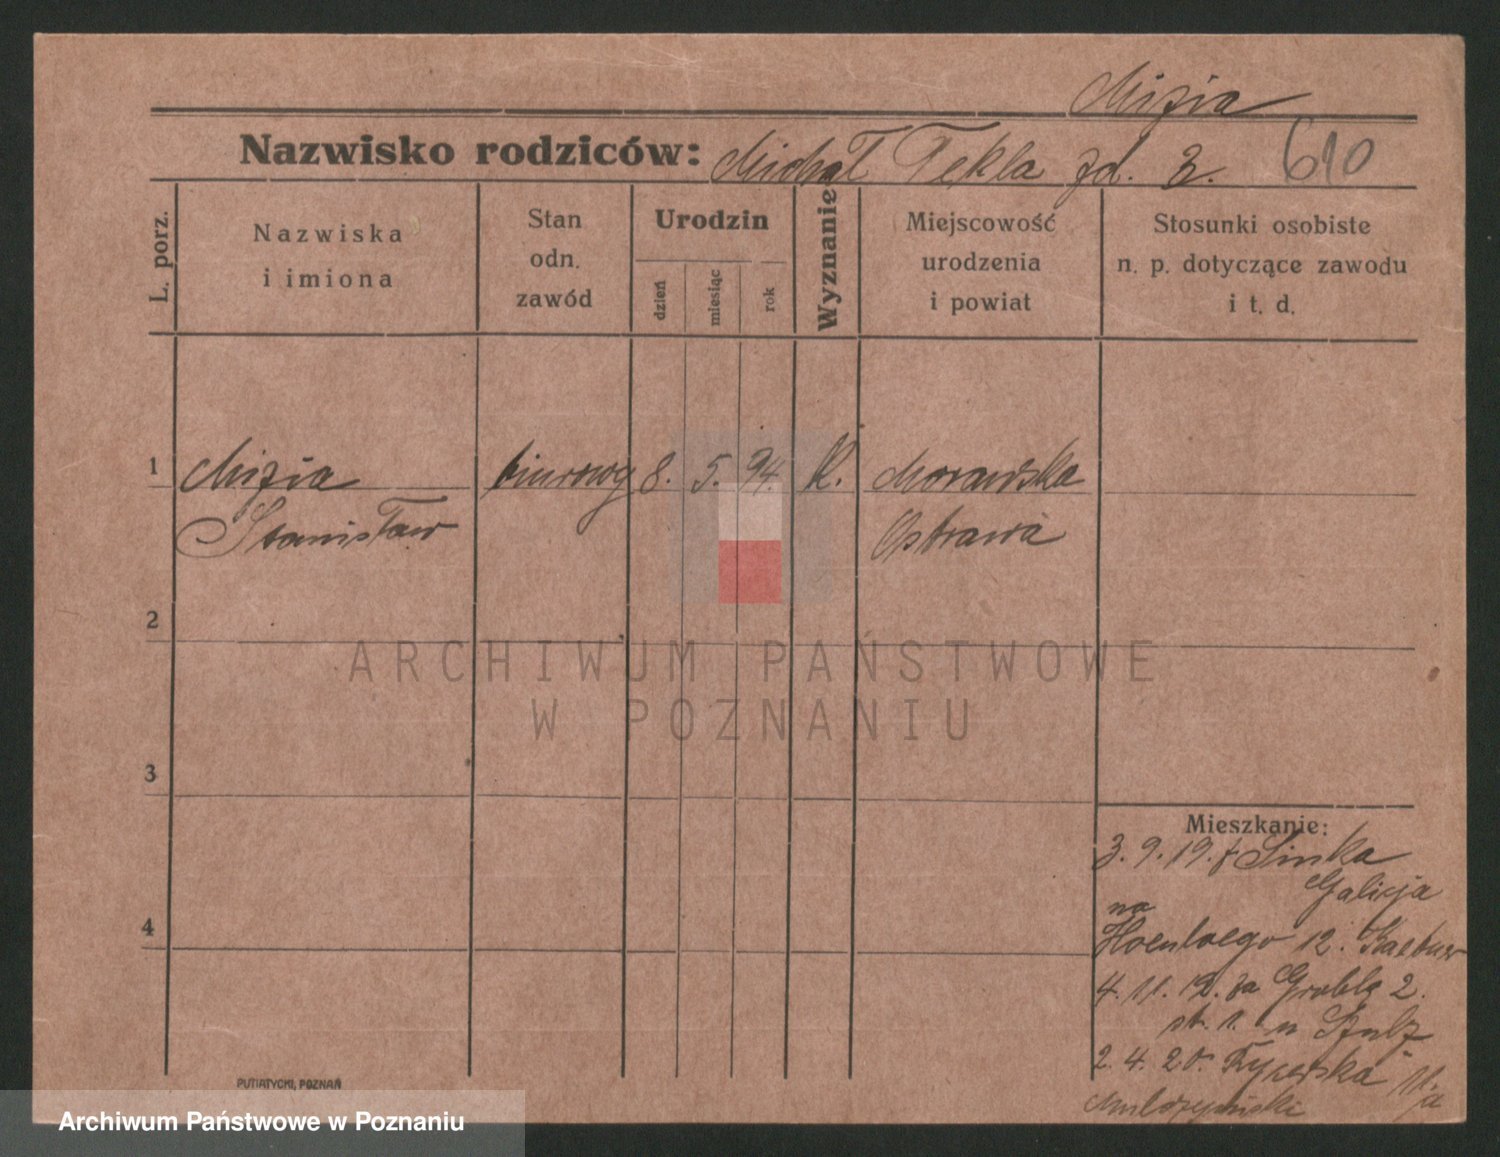 Mizia
Nazwisko rodziców: Michał Tekla zd. 2. 610
L. porz.
Nazwiska
i imiona
Stan
odn.
zawód
Urodzin
dzień
miesiąc
rok
Wyznanie
Miejscowość
urodzenia
i powiat
Stosunki osobiste
n. p. dotyczące zawodu
i t. d.
1 Mizia biurowy 8. 5. 94. K. Morawska
Stanisław Ostrawa
2
ARCHIWUM PAŃSTWOWE
W POZNANIU
3
Mieszkanie:
3. 9. 19. z
Galicja
na
4
12.
4. 11. 19. za Grobla 2.
st. 1. u Szulz
2. 4. 20. Rycerska 11.
PUTIATYCKI, POZNAŃ
Archiwum Państwowe w Poznaniu